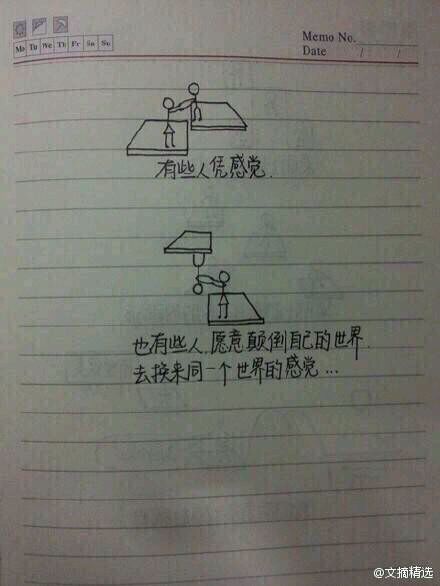 Memo No.
Mo Tu We Th Fr Sa Su
Date / /
有些人凭感觉.
也有些人.愿意颠倒自己的世界.
去换来同一个世界的感觉...
@文摘精选